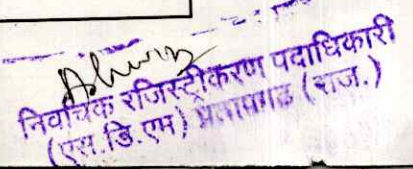 निर्वाचक रजिस्ट्रीकरण पदाधिकारी
(एस.डि.एम) प्रतापगढ (राज.)